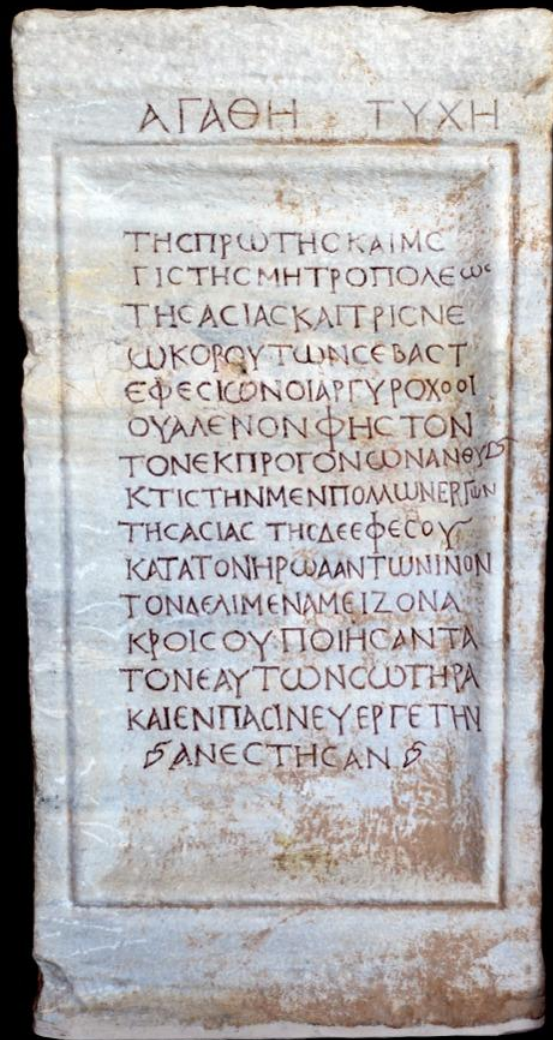 ΑΓΑΘΗ ΤΥΧΗ
ΤΗϹΠΡΩΤΗϹΚΑΙΜϹ
ΓΙϹΤΗϹΜΗΤΡΟΠΟΛΕΩϹ
ΤΗϹΑϹΙΑϹΚΑΙΤΡΙϹΝΕ
ΩΚΟΡΟΥΤΩΝϹΕΒΑϹΤ
ΕΦΕϹΙΩΝΟΙΑΡΓΥΡΟΧΟΟΙ
ΟΥΑΛΕΝΟΝΦΗϹΤΟΝ
ΤΟΝΕΚΠΡΟΓΟΝΩΝΑΝΘΥ
ΚΤΙϹΤΗΝΜΕΝΠΟΛΛΩΝΕΡΓΩΝ
ΤΗϹΑϹΙΑϹ ΤΗϹΔΕΕΦΕϹΟΥ
ΚΑΤΑΤΟΝΗΡΩΑΑΝΤΩΝΙΝΟΝ
ΤΟΝΔΕΛΙΜΕΝΑΜΕΙΖΟΝΑ
ΚΡΟΙϹΟΥ ΠΟΙΗϹΑΝΤΑ
ΤΟΝΕΑΥΤΩΝϹΩΤΗΡΑ
ΚΑΙΕΝΠΑϹΙΝΕΥΕΡΓΕΤΗΝ
ΑΝΕϹΤΗϹΑΝ